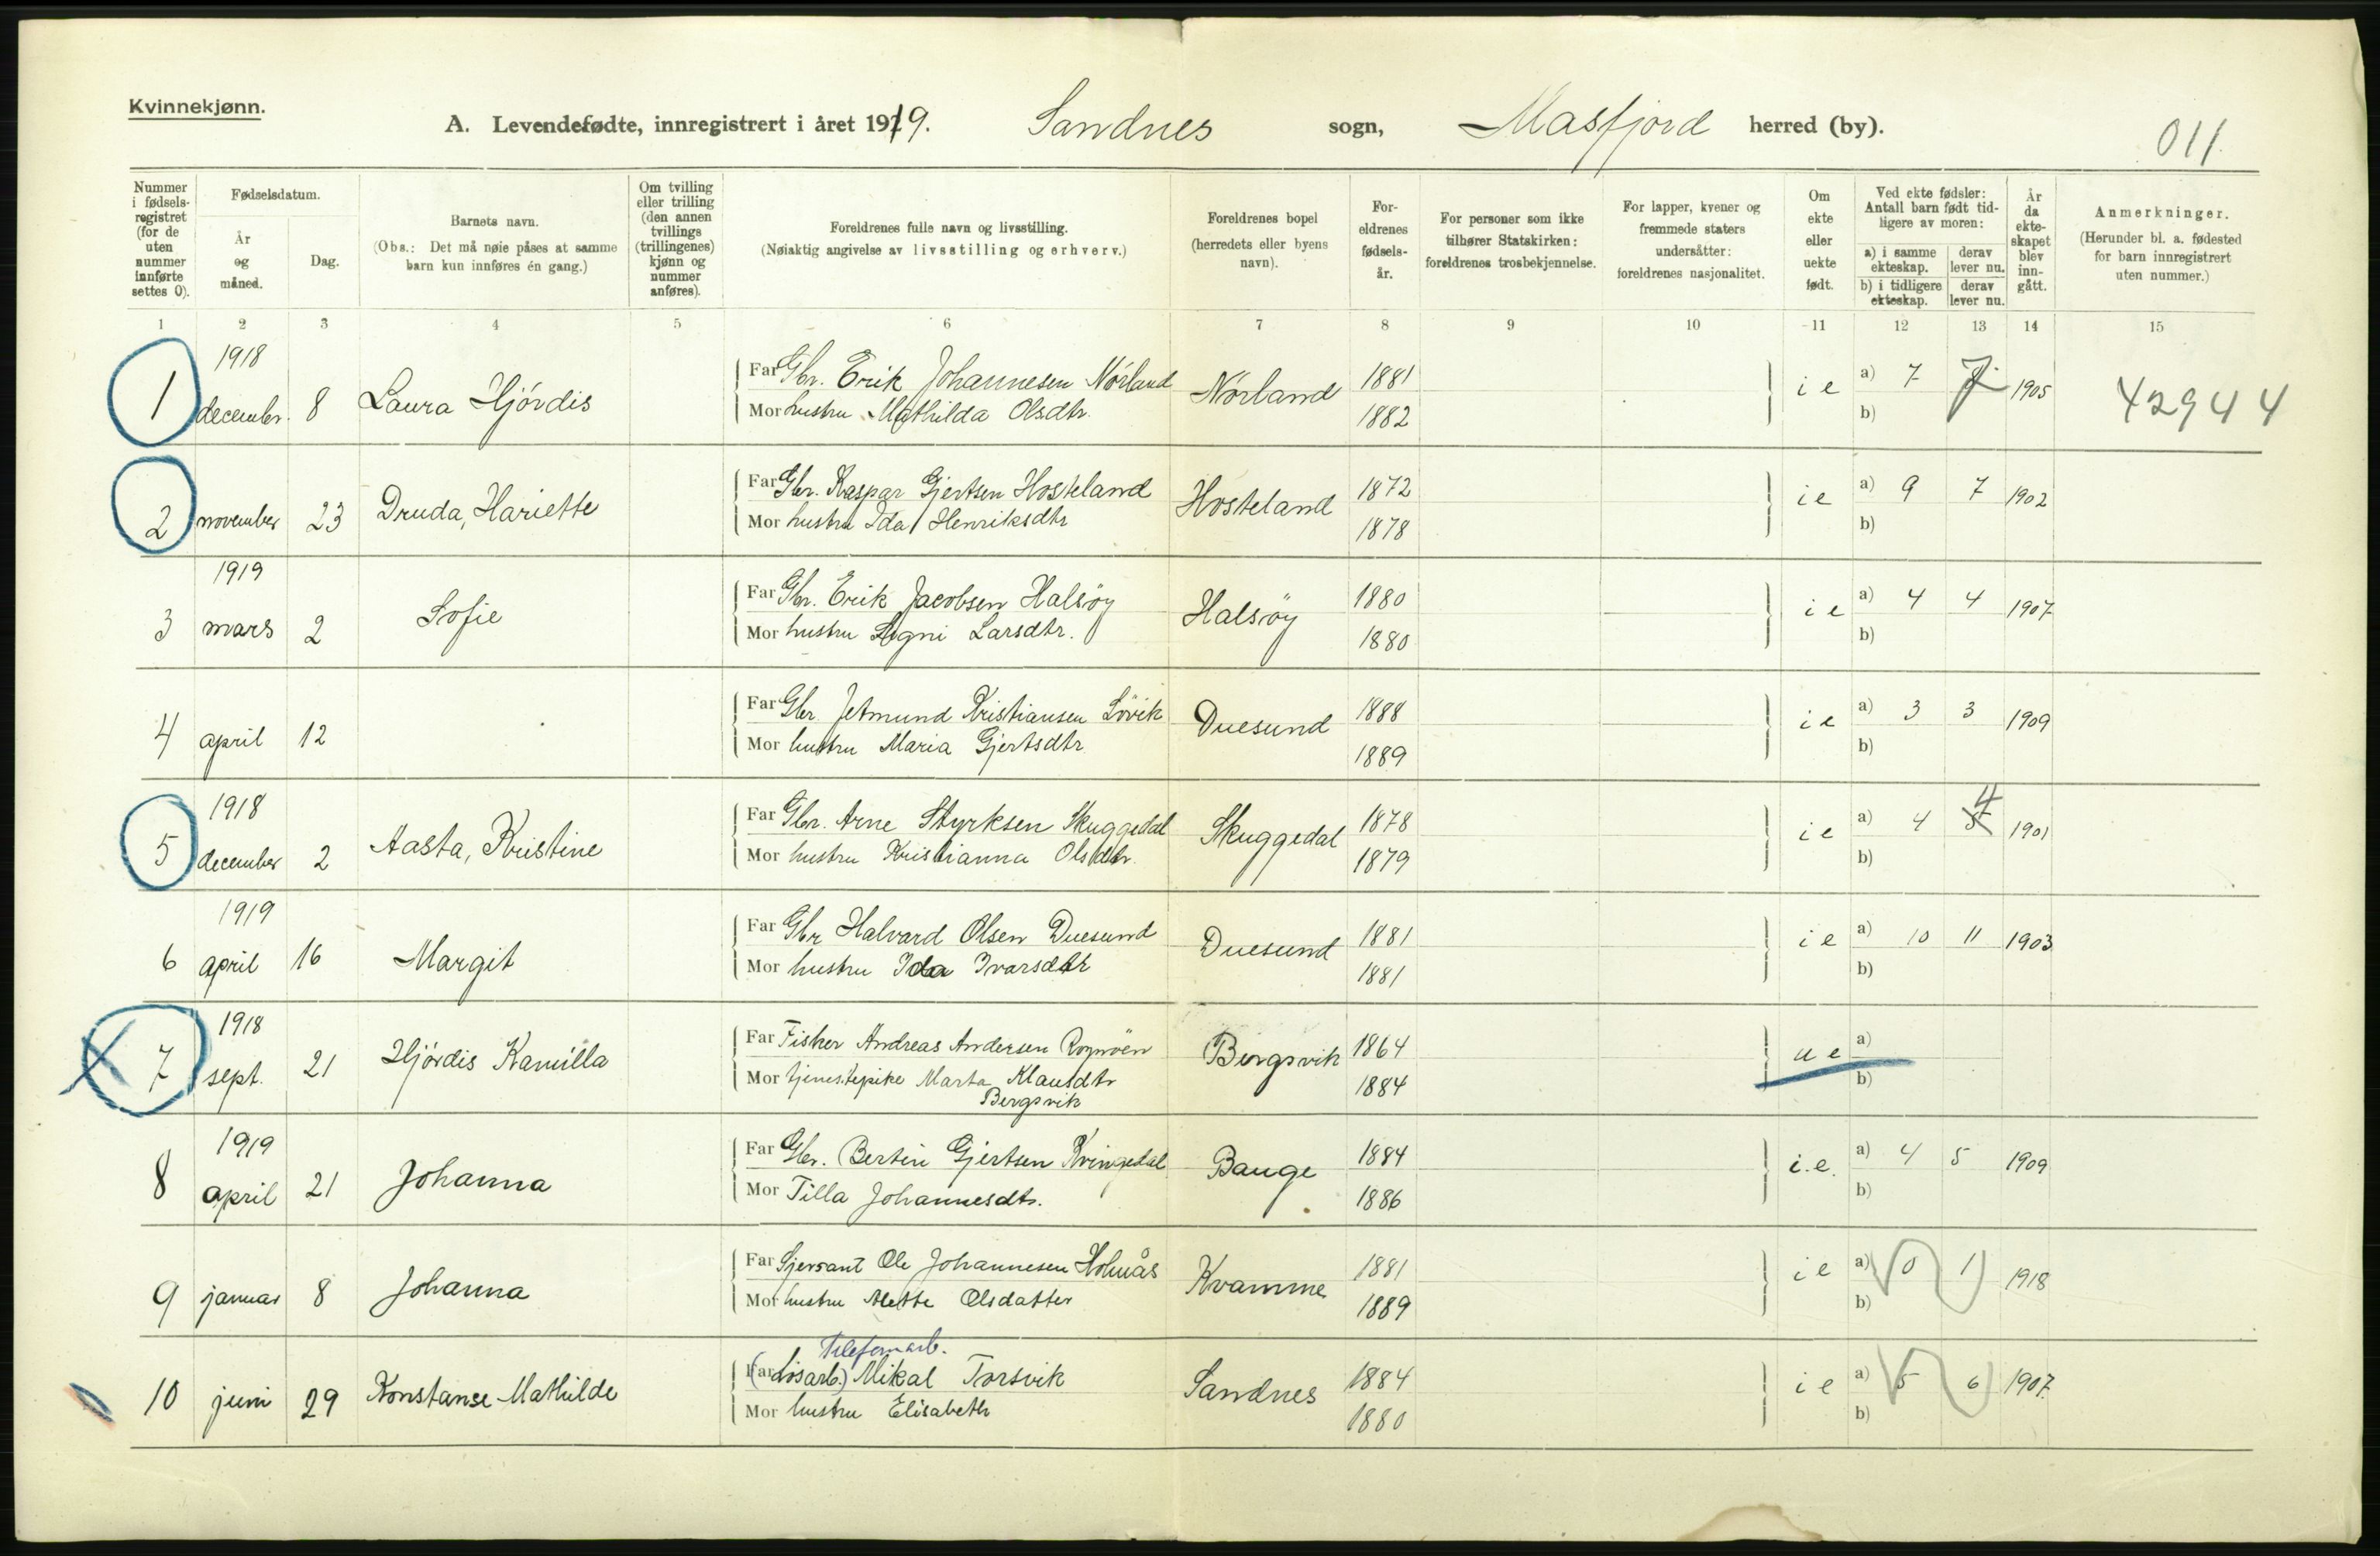 Kvinnekjønn.
A. Levendefødte, innregistrert i året 1919. Sandnes sogn, Masfjord herred (by).
011.
Nummer i fødsels-registret (for de uten nummer innførte settes 0).
Fødselsdatum.
År og måned.
Dag.
Barnets navn.
(Obs.: Det må nøie påses at samme barn kun innføres én gang.)
Om tvilling eller trilling (den annen tvillings (trillingenes) kjønn og nummer anføres).
Foreldrenes fulle navn og livsstilling.
(Nøiaktig angivelse av livsstilling og erhverv.)
Foreldrenes bopel (herredets eller byens navn).
For-eldrenes fødsels-år.
For personer som ikke tilhører Statskirken: foreldrenes trosbekjennelse.
For lapper, kvener og fremmede staters undersåtter: foreldrenes nasjonalitet.
Om ekte eller uekte født.
Ved ekte fødsler: Antall barn født tid-ligere av moren:
a) i samme ekteskap. derav lever nu.
b) i tidligere ekteskap. derav lever nu.
År da ekte-skapet blev inn-gått.
Anmerkninger.
(Herunder bl. a. fødested for barn innregistrert uten nummer.)
1 2 3 4 5 6 7 8 9 10 11 12 13 14 15
1918
1 decembr. 8 Laura Hjórdis Far Gbr. Erik Johannesen Nórland Nórland 1881 i e a) 7 7 1905 42944
Mor hustru Mathilda Olsdtr. 1882 b)
2 november 23 Druda, Hariette Far Gbr. Kaspar Gjertsen Hosteland Hosteland 1872 i e a) 9 7 1902
Mor hustru Ida Henriksdtr 1878 b)
1919
3 mars 2 Sofie Far Gbr. Erik Jacobsen Halsöy Halsöy 1880 i e a) 4 4 1907
Mor hustru Signi Larsdtr. 1880 b)
4 april 12 Far Gbr. Jetmund Kristiansen Lövik Duesund 1888 i e a) 3 3 1909
Mor hustru Maria Gjertsdtr 1889 b)
1918
5 december 2 Aasta, Kristine Far Gbr. Arne Styrksen Skuggedal Skuggedal 1878 i e a) 4 5 4 1901
Mor hustru Kristianna Olsdtr. 1879 b)
1919
6 april 16 Margit Far Gbr Halvard Olsen Duesund Duesund 1881 i e a) 10 11 1903
Mor hustru Ida Ivarsdtr 1881 b)
1918
7 sept. 21 Hjórdis Kamilla Far Fisker Andreas Andersen Bergsvik 1864 u e a)
Mor tjenestepike Marta Klausdtr 1884 b)
Bergsvik
1919
8 april 21 Johanna Far Gbr. Bertin Gjertsen Kvingedal Bauge 1884 i.e. a) 4 5 1909
Mor Tilla Johannesdtr. 1886 b)
9 januar 8 Johanna Far Sjersant Ole Johannesen Holmås Kvamme 1881 i e a) 0 1 1918
Mor hustru Mette Olsdatter 1889 b)
Telefonarb.
10 juni 29 Konstanse Mathilde Far (Lösarb.) Mikal Torsvik Sandnes 1884 i e a) 5 6 1907
Mor hustru Elisabeth 1880 b)